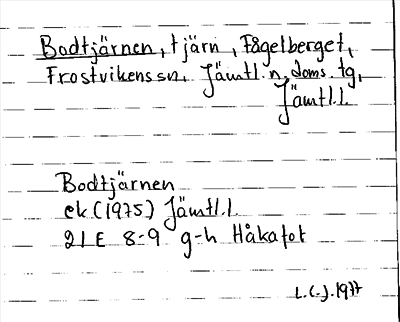 Bodtjärnen, tjärn, Fågelberget,
Frostvikens sn. Jämtl. n. doms. tg,
Jämtl.l.
Bodtjärnen
ek (1975) Jämtl.l.
21E 8-9 g-h Håkafot
L.(-). 1977